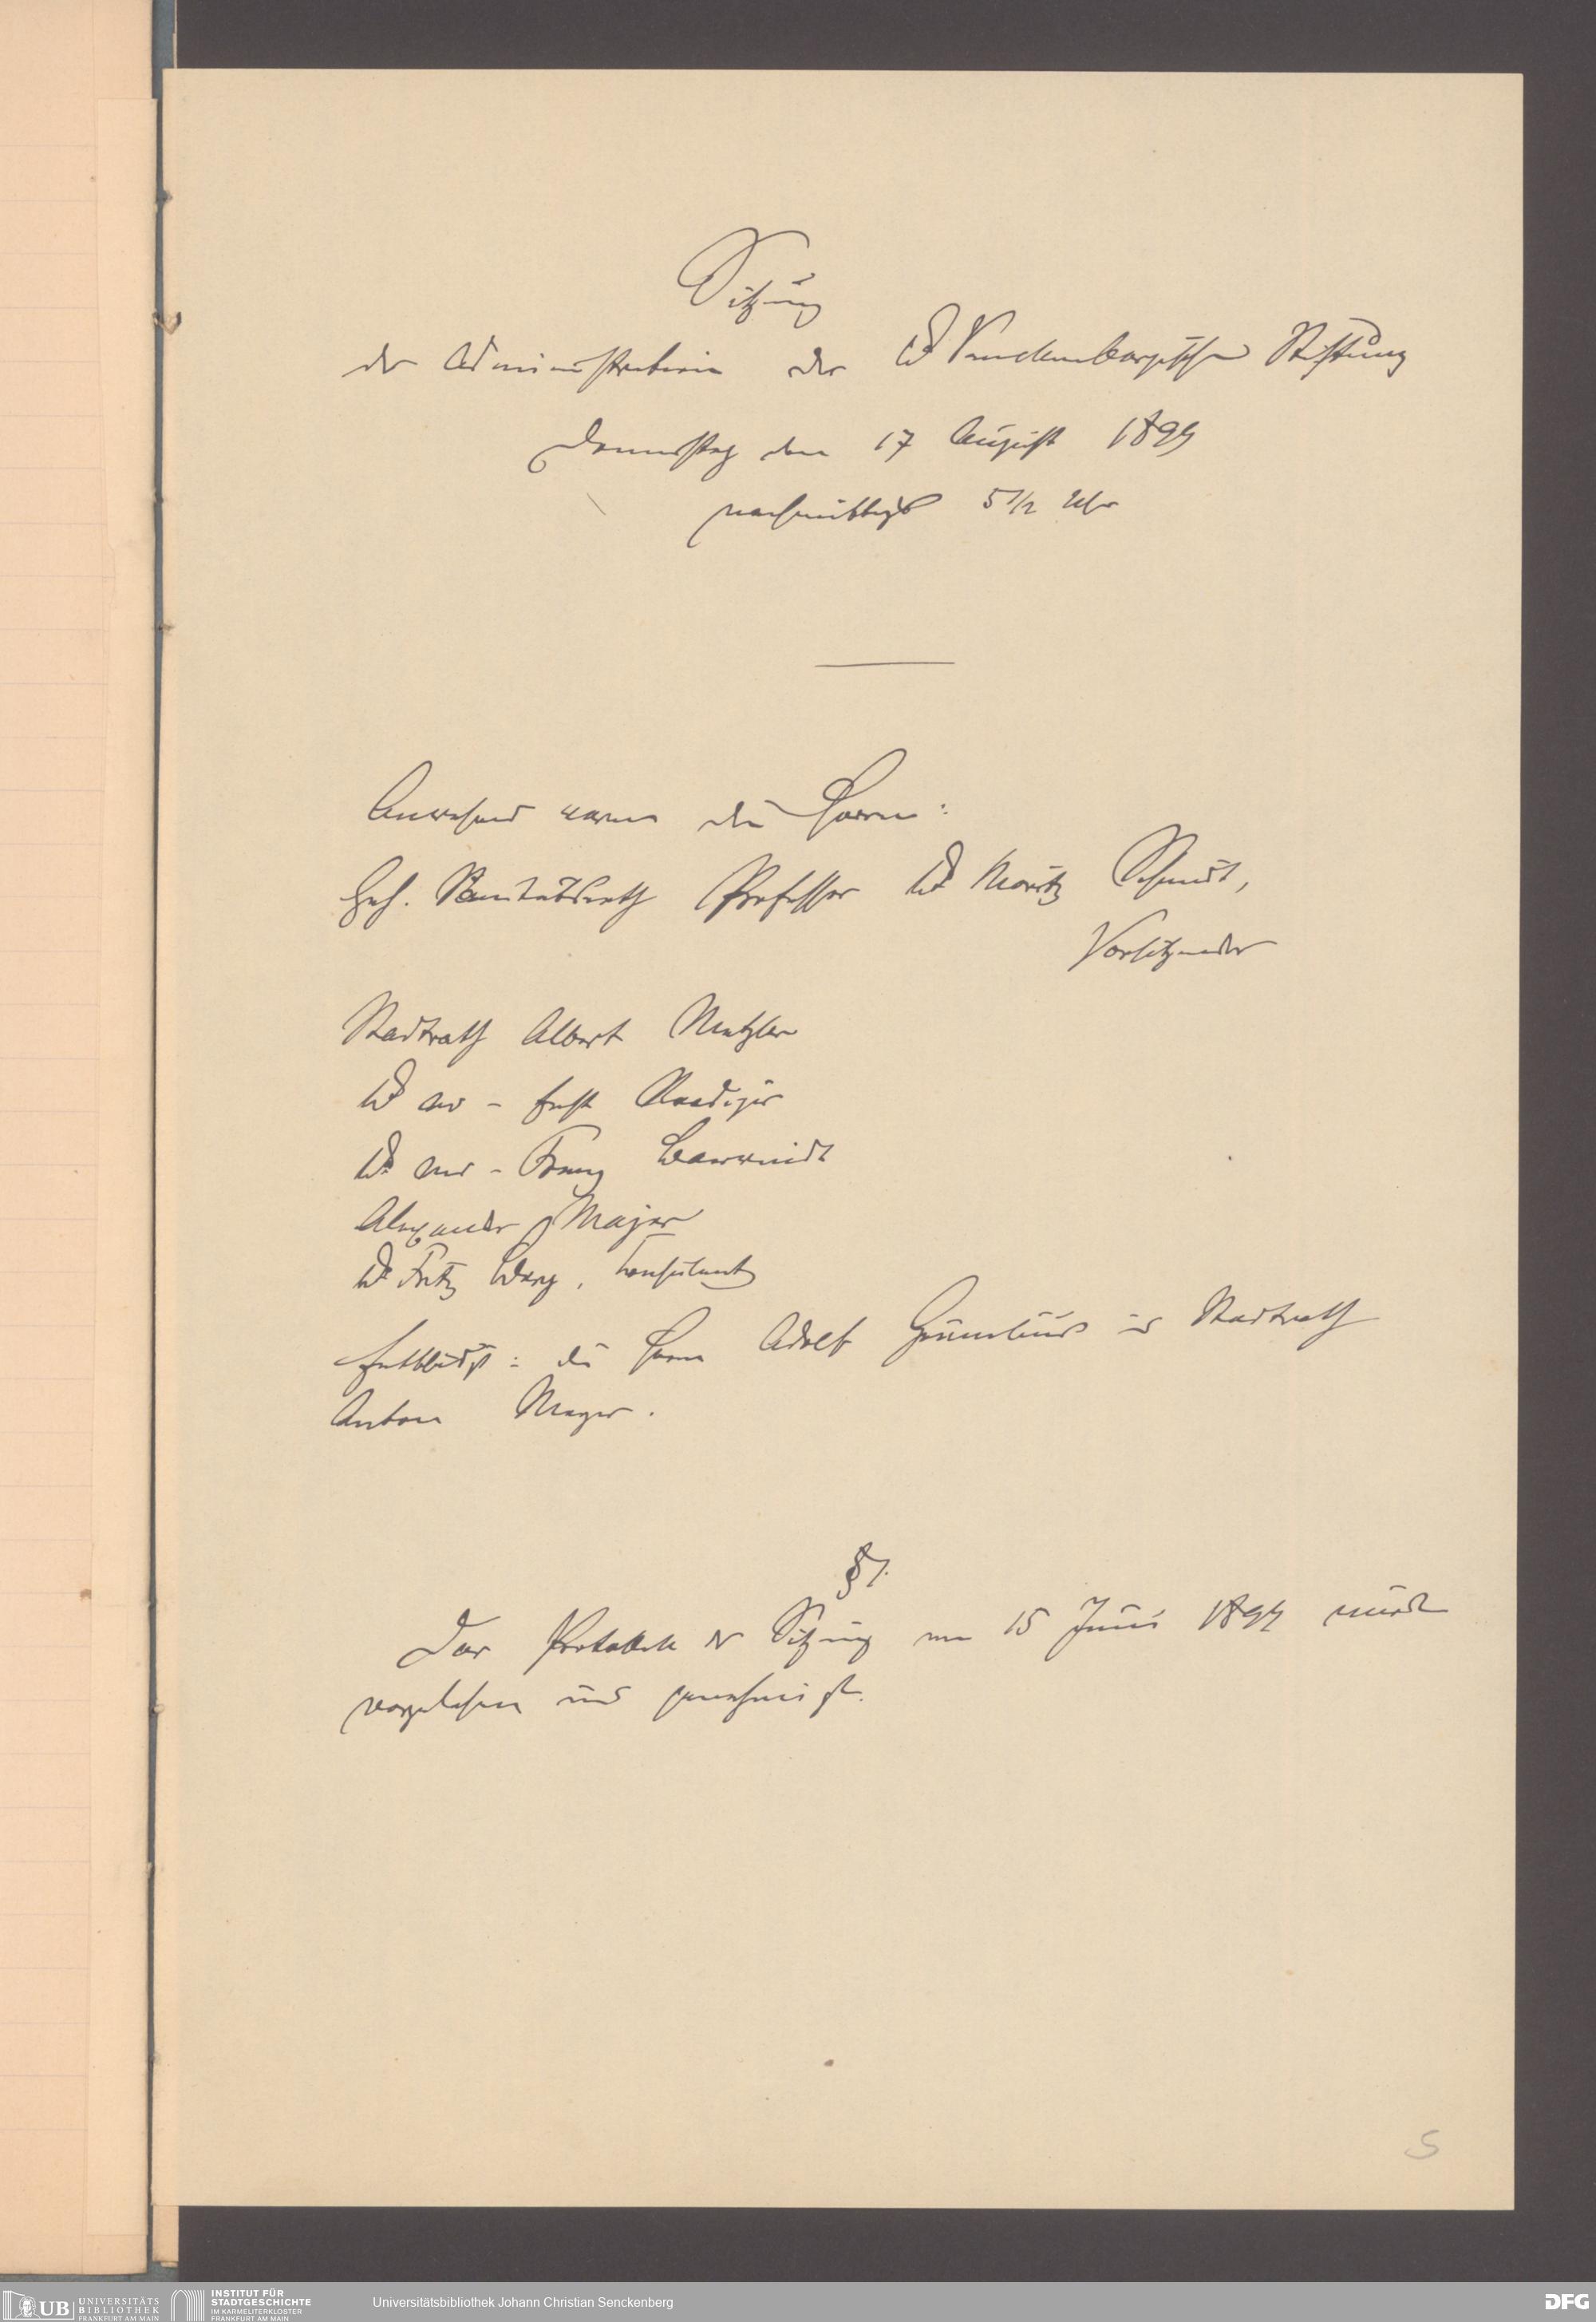 Sitzung
der Administration der Dr Senckenbergischen Stiftung
Donnerstag den 17 August 1899
nachmittags 5 1/2 Uhr
Anwesend waren die Herrn:
Geh. Sanitätsrath Professor Dr Moritz Schmidt,
Vorsitzender
Stadtrath Albert Metzler
Dr med – Ernst Roediger
Dr med – Franz Bärwindt
Alexander Majer
Dr Fritz Berg, Consulent
Entschuldigt: die Herrn Adolf Grunelius und Stadtrath
Anton Meyer.
§ 1.
Das Protokoll der Sitzung vom 15 Juni 1899 wurde
vorgelesen und genehmigt.
5
UB UNIVERSITÄTS
BIBLIOTHEK
FRANKFURT AM MAIN
INSTITUT FÜR
STADTGESCHICHTE
IM KARMELITERKLOSTER
FRANKFURT AM MAIN
Universitätsbibliothek Johann Christian Senckenberg
DFG